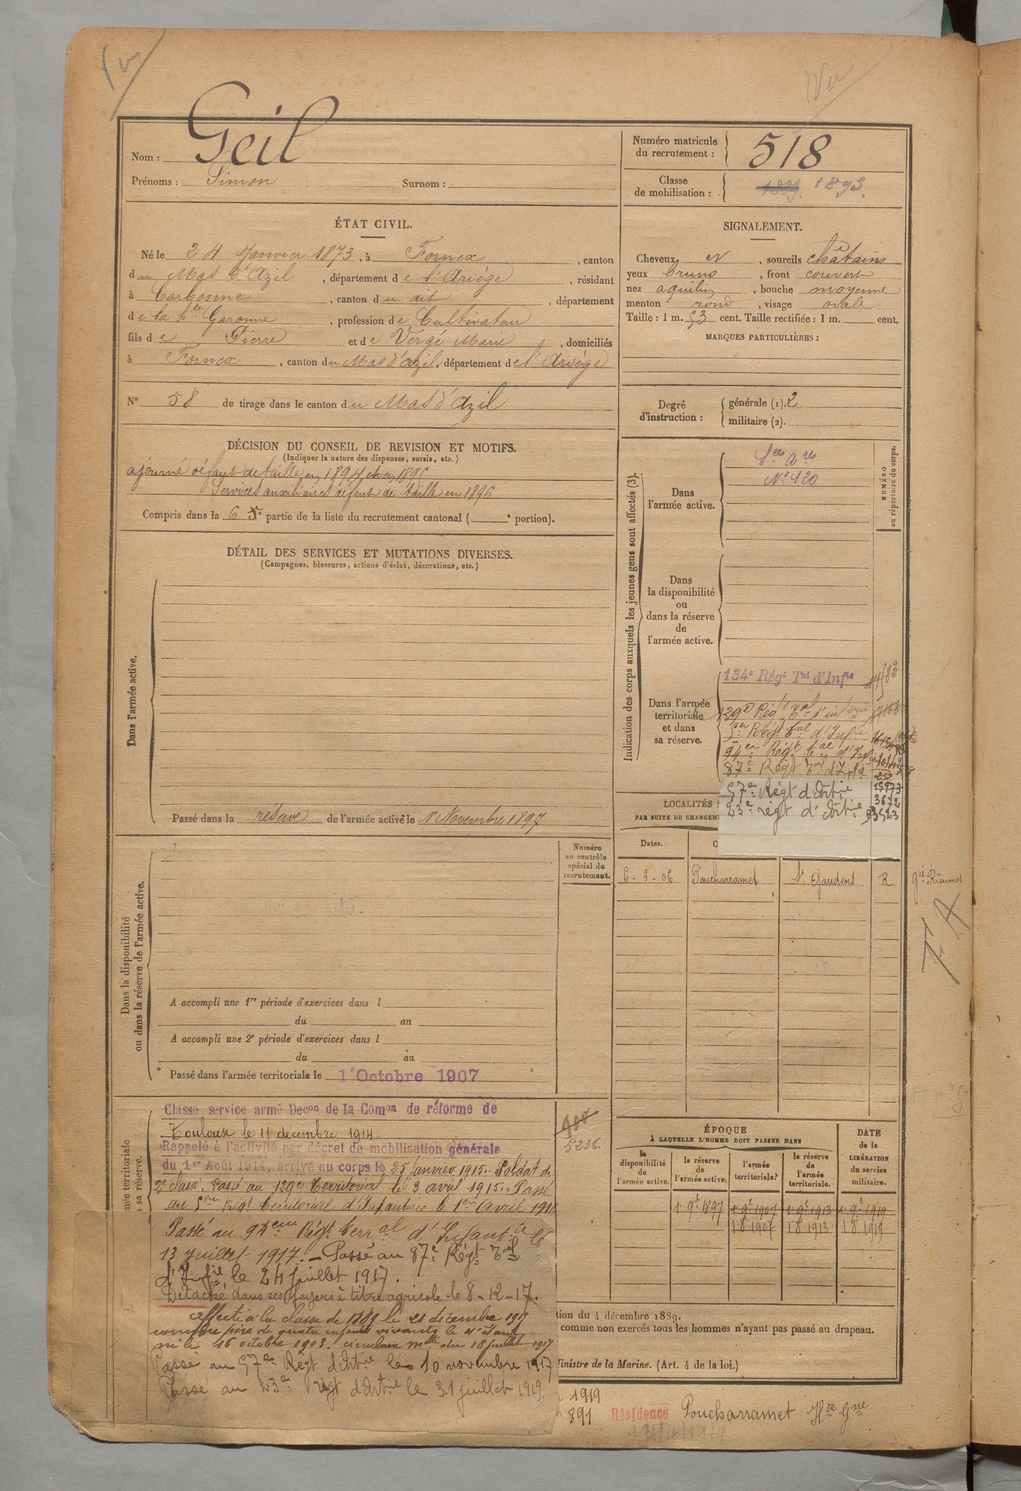 Vu
Vu
Nom : Geil
Prénoms : Simon Surnom :
Numéro matricule du recrutement : 518
Classe de mobilisation : 1889. 1893.
ÉTAT CIVIL.
Né le 24 Janvier 1873, à Fornex, canton
du Mas d'Azil, département de l'Ariège, résidant
à Cargonne, canton du dit, département
de la Hte Garonne, profession de Cultivateur
fils de Pierre et de Verge Marie, domiciliés
à Fornex, canton du Mas d'azil, département de l'Ariège
N° 58 de tirage dans le canton du Mas d'Azil
SIGNALEMENT.
Cheveux et, sourcils châtains
yeux bruns, front couvert
nez aquilin, bouche moyenne
menton rond, visage ovale
Taille : 1 m. 53 cent. Taille rectifiée : 1 m. cent.
MARQUES PARTICULIÈRES :
Degré d'instruction : générale (1). 2
militaire (2).
DÉCISION DU CONSEIL DE REVISION ET MOTIFS.
(Indiquer la nature des dispenses, sursis, etc.)
ajourné défaut de taille en 1894 et en 1895
Services auxiliaires défaut de taille en 1896
Compris dans la 6 5e partie de la liste du recrutement cantonal ( e portion).
DÉTAIL DES SERVICES ET MUTATIONS DIVERSES.
(Campagnes, blessures, actions d'éclat, décorations, etc.)
Dans l'armée active.
Passé dans la réserve de l'armée active le 1er Novembre 1897
Indication des corps auxquels les jeunes gens sont affectés (3).
NUMÉRO au répertoire du corps.
Dans l'armée active.
Sces Ares
N° 120
Dans la disponibilité ou dans la réserve de l'armée active.
Dans l'armée territoriale et dans sa réserve.
134e Régt Tal d'Infie
129e Régt Tal d'infie
5er Régt Tal d'Infie
94e Régt Tal d'Infie
87e Régt Tal d'Infie
57e Régt d'Artie 3672
23e régt d'Artie
LOCALITÉS
PAR SUITE DE CHANGEM
Dates.
6-3-06 Poucharramet St Gaudens R
gie Rieumes
Numéro au contrôle spécial du recrutement.
Dans la disponibilité ou dans la réserve de l'armée active.
A accompli une 1re période d'exercices dans l
du au
A accompli une 2e période d'exercices dans l
du au
Passé dans l'armée territoriale le 1er Octobre 1907
mée territoriale
sa réserve.
Classé service armé Decon de la Comon de réforme de
Toulouse le 11 décembre 1914
Rappelé à l'activité par décret de mobilisation générale
du 1er Août 1914, arrivé au corps le 25 Janvier 1915. Soldat de
2e classe. Passé au 129e Territorial le 3 avril 1915. Passé
au 5eme Régt Territorial d'Infanterie le 1er avril 191
Passé au 94eme Régt Terral d'Infantie le
13 juillet 1917. Passé au 87e Régt Tal
d'Infie le 24 juillet 1917.
Détaché dans ses foyers à titre agricole le 8-12-17.
affecté à la classe de 1889 le 21 décembre 191
comme père de quatre enfants vivants le 4e
né le 16 octobre 1903. circulaire melle du 18 juillet 1917
Passé au 57e Régt d'Artie le 10 novembre 1917
Passé au 23e régt d'Artie le 31 juillet 1919.
3236
ÉPOQUE
À LAQUELLE L'HOMME DOIT PASSER DANS
la disponibilité de l'armée active.
la réserve de l'armée active.
l'armée territoriale.
la réserve de l'armée territoriale.
DATE de la LIBÉRATION du service militaire.
1 9e 1897 1 9e 1907 1 9e 1913 1 9e 1919
1 8 1907 1 8 1913 1 8 1919
tion du 4 décembre 1889.
comme non exercés tous les hommes n'ayant pas passé au drapeau.
Ministre de la Marine. (Art. 4 de la loi.)
1919
891 Résidence Poucharramet Hte Gne